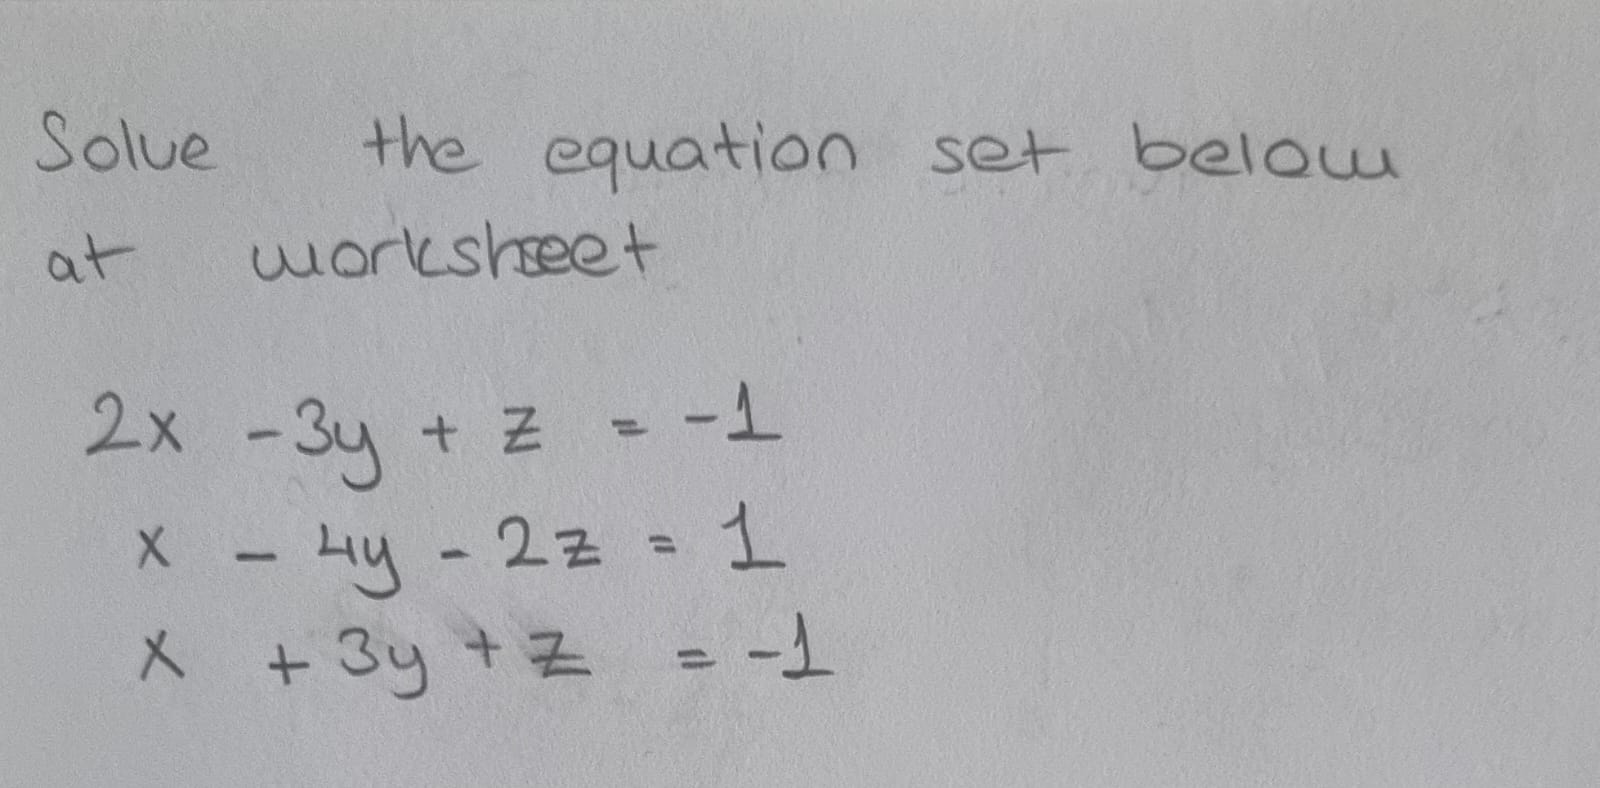 Solve the equation set below
at worksheet
2x - 3y + z = -1
x - 4y - 2z = 1
x + 3y + z = -1